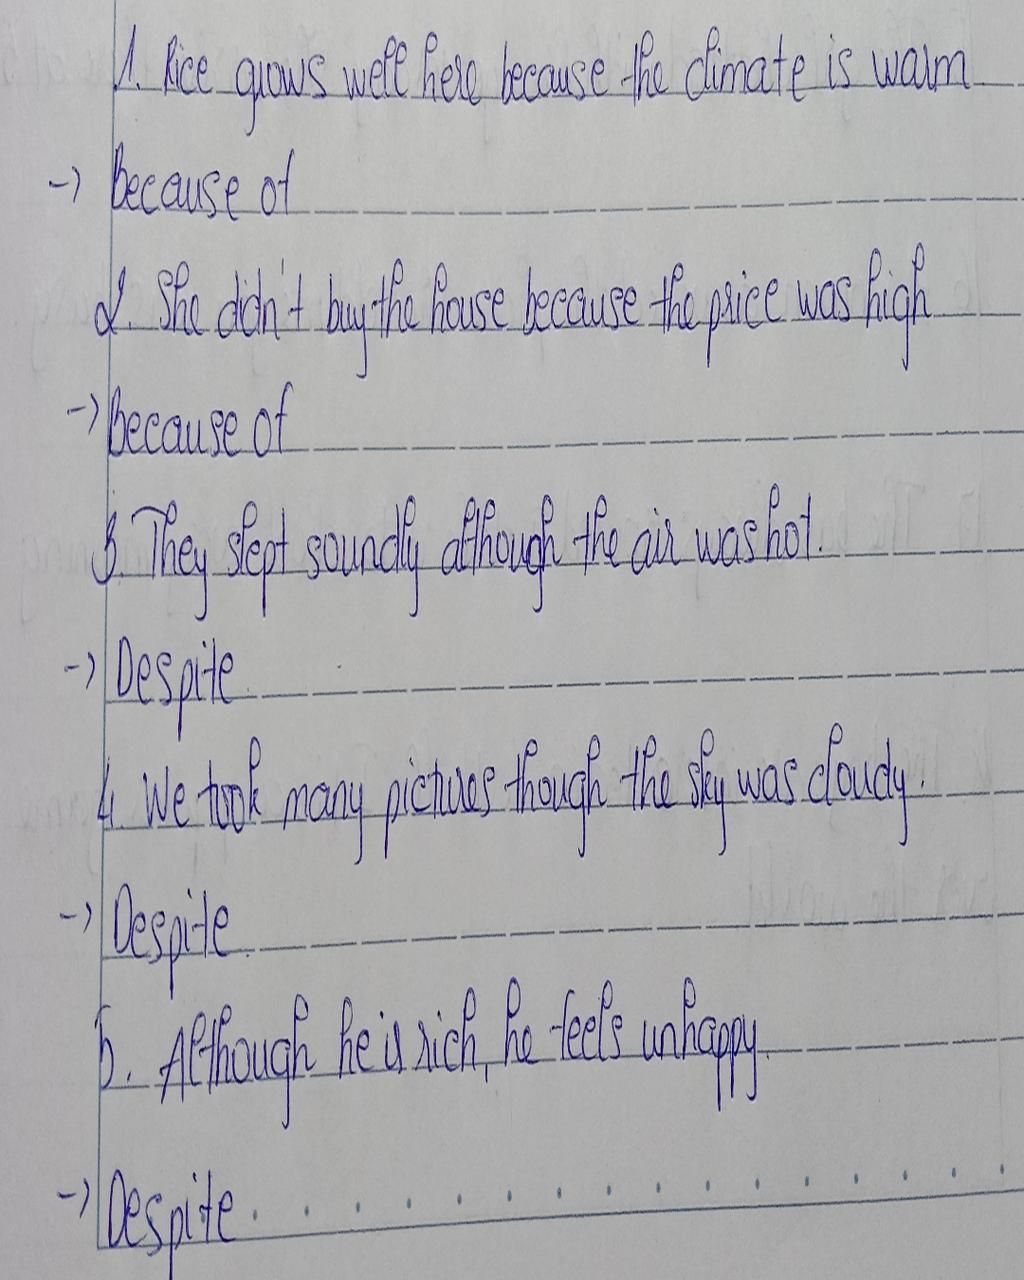 1. Rice grows well here because the climate is warm
-> Because of
2. She didn't buy the house because the price was high
-> Because of
3. They slept soundly although the air was hot.
-> Despite
4. We took many pictures though the sky was cloudy.
-> Despite
5. Although he is rich, he feels unhappy.
-> Despite. . . . . . . . . . . . . . . .